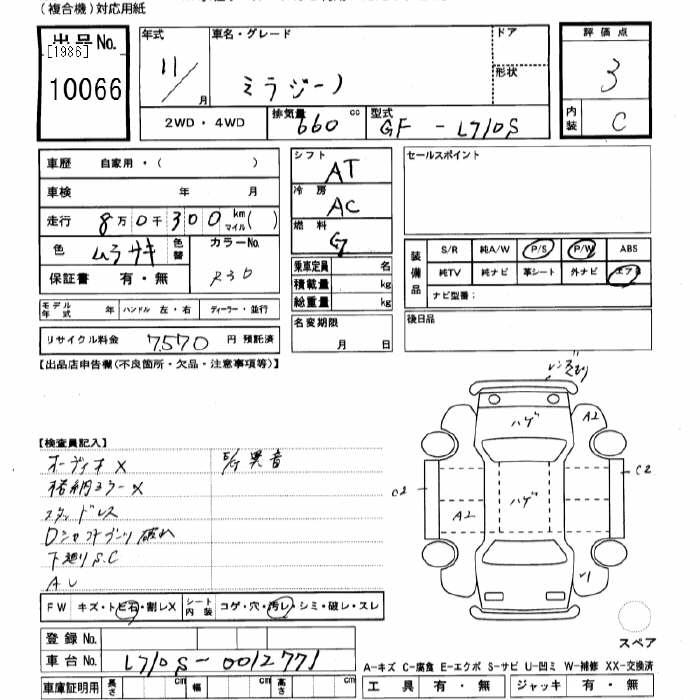 (複合機)対応用紙
出品No.
[1986]
10066
年式
11/
月
車名・グレード
ミラジーノ
ドア
形状
評価点
3
内装
C
2WD・4WD
排気量 660 cc
型式 GF-L710S
車歴 自家用・( )
車検 年 月
走行 8万0千300 km マイル( )
色 ムラサキ 色替
カラーNo.
保証書 有・無
モデル年式 年 ハンドル 左・右 ディーラー・並行
リサイクル料金 7,570 円 預託済
シフト
AT
冷房
AC
燃料
G
乗車定員 名
積載量 kg
総重量 kg
名変期限
月 日
セールスポイント
装備品
S/R 純A/W P/S P/W ABS
純TV 純ナビ 革シート 外ナビ エアB
ナビ型番:
後日品
【出品店申告欄(不良箇所・欠品・注意事項等)】
【検査員記入】
オーディオ X
異音
格納ミラーX
スタッドレス
Dシャフトブーツ破れ
下廻りS.C
FW キズ・トビ石・割レX シート内装 コゲ・穴・汚レ・シミ・破レ・スレ
登録No.
車台No. L710S-0012771
車庫証明用 長さ cm 幅 cm 高さ cm
ハゲ
A2
C2
C2
ハゲ
A2
スペア
A-キズ C-腐食 E-エクボ S-サビ U-凹ミ W-補修 XX-交換済
工具 有・無 ジャッキ 有・無